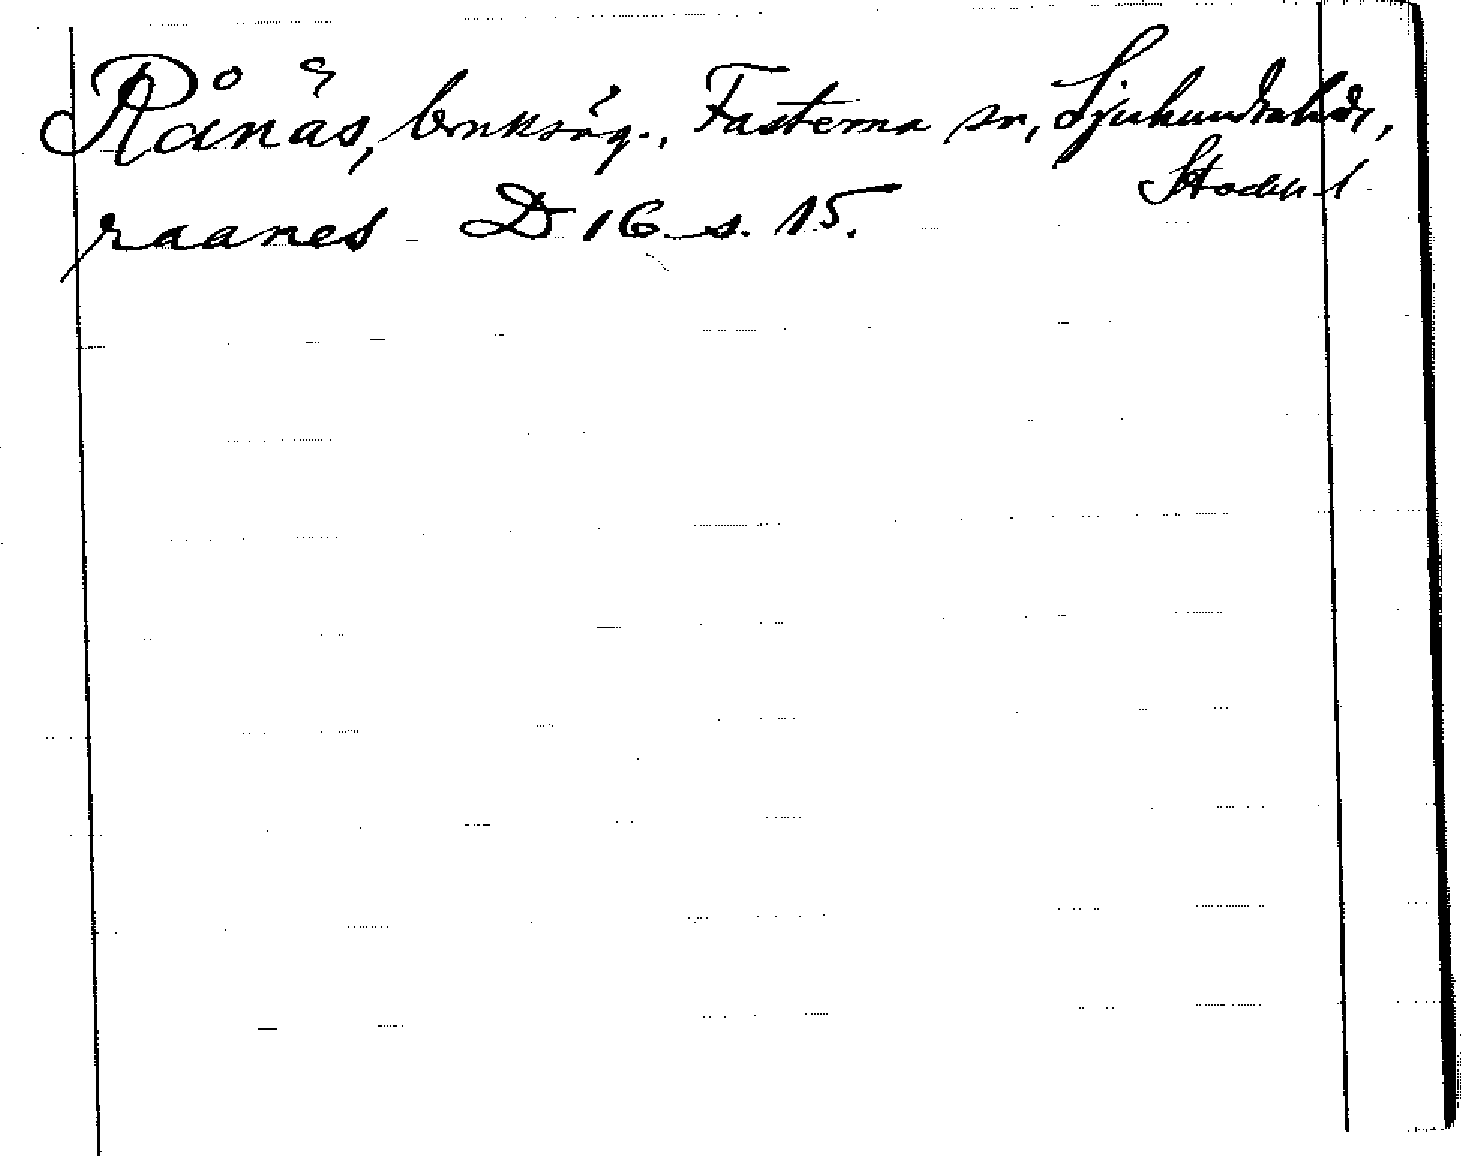 Rånäs, bruksäg., Fasterna sn, Sjuhundra hd,
Stockh. l
raanes D 16 s. 15.